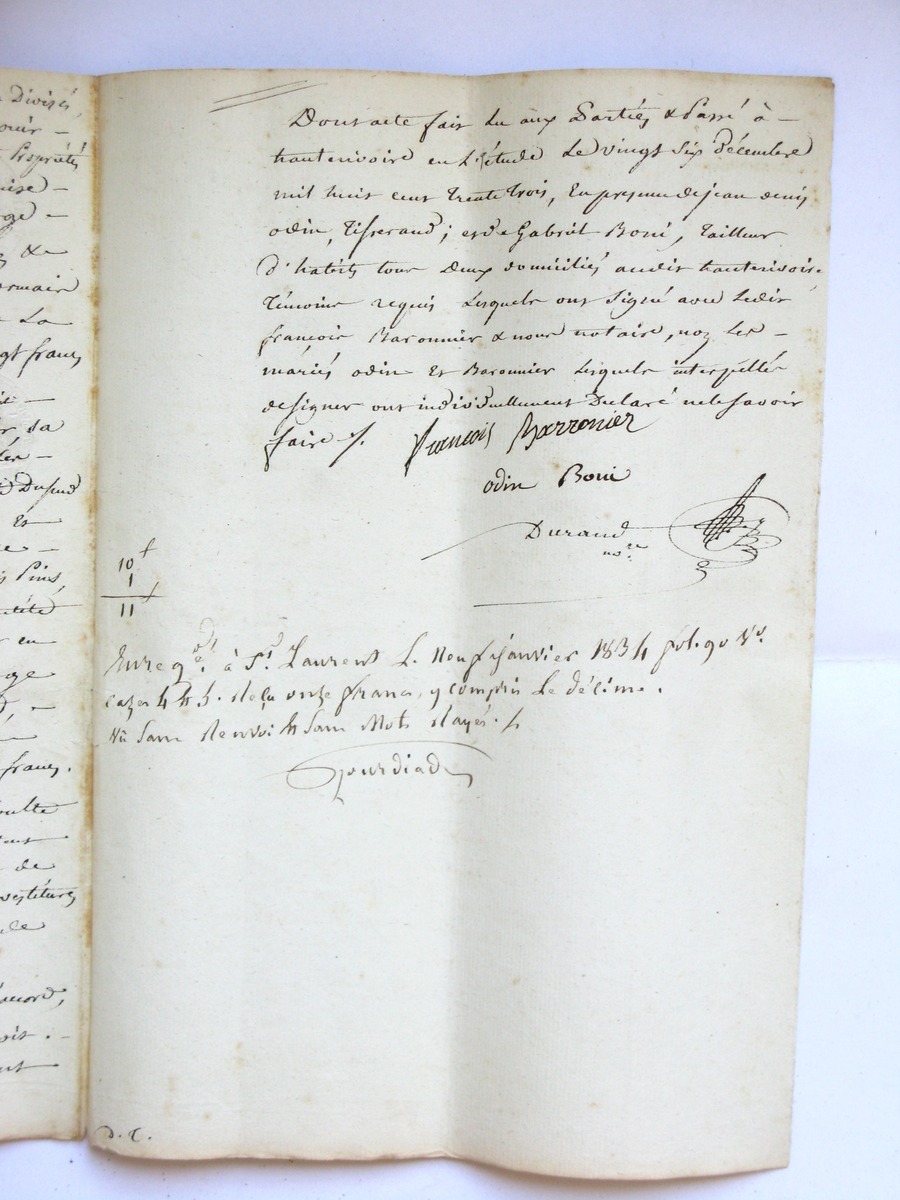 Dont acte fait lu aux Partiés & Passé à –
hauterivoire en L'étude Le vingt Six décembre
mil huit cent trente trois, En presence de jean denis
odin, Tisserand; et de Gabriel Boni, Tailleur
d'habits tous Deux domiciliés audit hauterivoire.
Témoins requis Lesquels ont Signé avec Ledit
françois Baronnier & nous notaire, non Les –
mariés odin Et Baronnier Lesquels interpellés
de signer ont individuellement Declaré ne le Savoir
faire /.
françois Barronier
odin Boni
Durand
no.re
10 f
1
11 f
Enreg.é à St. Laurent Le Neuf janvier 1834 fol. 90 Vo.
cazes 4 & 5. Reçu onze francs, y compris Le décime.
Vu Sans Renvoi & Sans Mots Rayés.
D. T.
Divisé,
Propriété
uise –
&
ermain
La
gt francs
–
sa
Et
Pins,
en
francs.
de
vestitures
'accord,